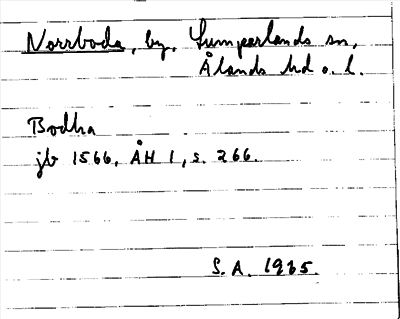 Norrboda, by, Lumparlands sn,
Ålands hd o. l.
Bodha
jb 1566, ÅH 1, s. 266.
S. A. 1965.